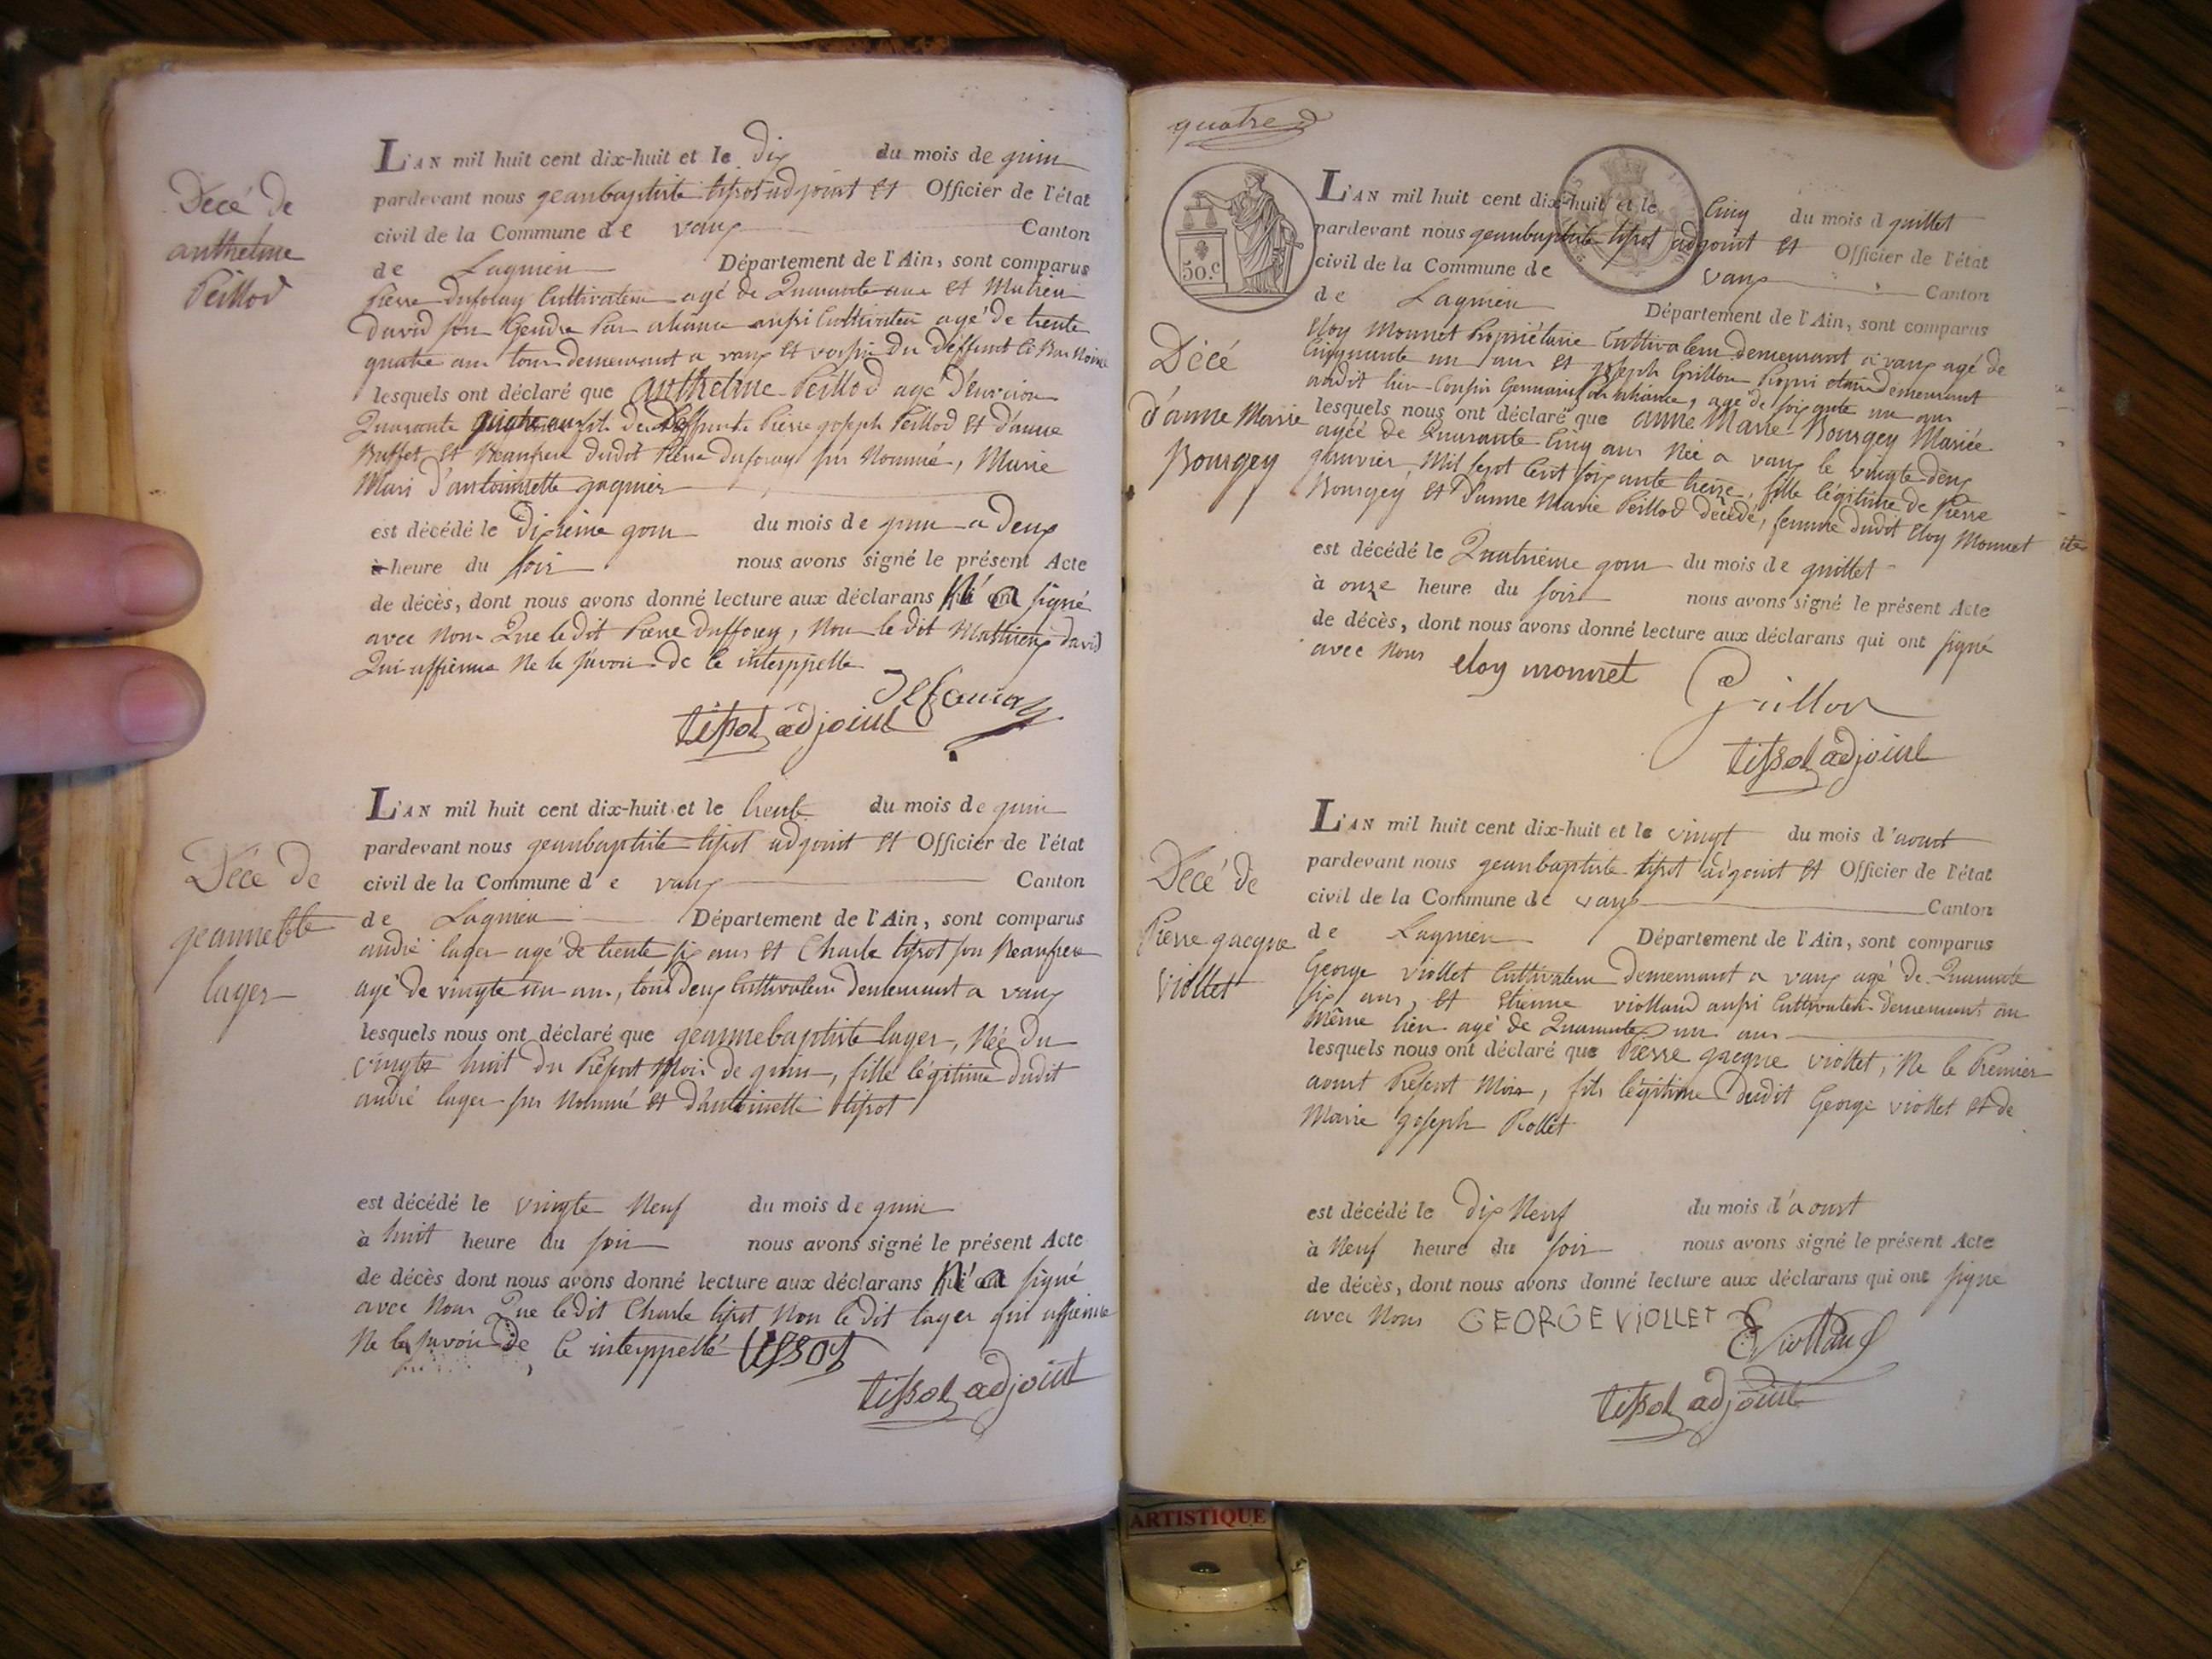 Décé de
anthelme
Peillod
L'AN mil huit cent dix-huit et le dix du mois de juin
pardevant nous jeanbaptiste tissot adjoint et Officier de l'état
civil de la Commune de vaux Canton
de Lagnieu Département de l'Ain, sont comparus
Pierre Dufouny Cultivateur agé de Quarante ans et Mathieu
David son Gendre Par aliance aussi Cultivateur agé de trente
quatre ans tous demeurant a vaux et voisin du Deffunt
lesquels ont déclaré que anthelme Peillod agé d'environ
Quarante quatre ans fils de Deffunt Pierre joseph Peillod et d'anne
Buffet et Beaufrere dudit Pierre Dufouny sus Nommé, Marie
Mari d'antoinette gagnier
est décédé le Dixième jour du mois de juin a Deux
à heure du soir nous avons signé le présent Acte
de décès, dont nous avons donné lecture aux déclarans signé
avec Nous Que ledit Pierre Duffouny, Non le dit Mathieu David
Qui affirme Ne le savoir de ce interppellé
tissot adjoint
Décé de
jeannebte
lager
L'AN mil huit cent dix-huit et le trente du mois de juin
pardevant nous jeanbaptiste tissot adjoint et Officier de l'état
civil de la Commune de vaux Canton
de Lagnieu Département de l'Ain, sont comparus
andré lager agé de trente six ans et Charle tissot son Beaufrere
agé de vingte un ans, tous Deux Cultivateur demeurant a vaux
lesquels nous ont déclaré que jeannebaptiste lager, Née du
vingte huit du Présent Mois de juin, fille légitime dudit
andré lager sus Nommé et d'antoinette tissot
est décédé le vingte Neuf du mois de juin
à huit heure du soir nous avons signé le présent Acte
de décès dont nous avons donné lecture aux déclarans signé
avec Nous Que ledit Charle tissot Non le dit lager qui affirme
Ne le savoir De ce interppellé tissot
tissot adjoint
quatre
50.c
Décé
d'anne Marie
Bourgey
L'AN mil huit cent dix-huit et le Cinq du mois d juillet
pardevant nous jeanbaptiste tissot adjoint et Officier de l'état
civil de la Commune de vaux Canton
de Lagnieu Département de l'Ain, sont comparus
Eloy Monnet Propriétaire Cultivateur demeurant a vaux agé de
Cinquante un ans et joseph Grillon Propriétaire demeurant
audit lieu Cousin Germain Par aliance, agé de soixante un ans
lesquels nous ont déclaré que anne Marie Bourgey Mariée
agée de Quarante Cinq ans Née a vaux le vingte Deux
janvier Mil sept Cent soixante treize, fille légitime de Pierre
Bourgey et D'anne Marie Peillod Décédé, femme dudit Eloy Monnet
est décédé le Quatrieme jour du mois de juillet
à onze heure du soir nous avons signé le présent Acte
de décès, dont nous avons donné lecture aux déclarans qui ont signé
avec Nous eloy monnet
Grillon
tissot adjoint
Décé de
Pierre jacque
viollet
L'AN mil huit cent dix-huit et le vingt du mois d'aoust
pardevant nous jeanbaptiste tissot adjoint et Officier de l'état
civil de la Commune de vaux Canton
de Lagnieu Département de l'Ain, sont comparus
George viollet Cultivateur demeurant a vaux agé de Quarante
six ans, et Etienne violland aussi Cultivateur demeurant au
même lieu agé de Quarante un ans
lesquels nous ont déclaré que Pierre jacque viollet, Né le Premier
aoust Présent Mois, fils légitime dudit George viollet et de
Marie joseph Rollet
est décédé le Dix Neuf du mois d'aoust
à Neuf heure du soir nous avons signé le présent Acte
de décès, dont nous avons donné lecture aux déclarans qui ont signé
avec Nous GEORGE ViOLLET E Violland
tissot adjoint
ARTISTIQUE